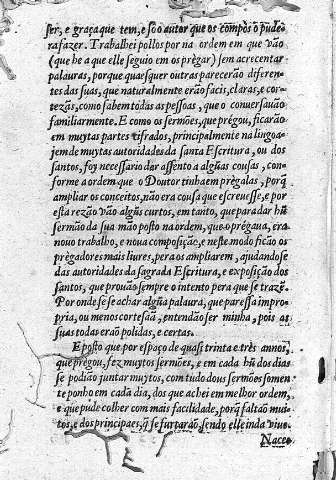 ser, e graça que tem, e só o autor que os compôs o pude-
ra fazer. Trabalhei pollos por na ordem em que vão
(que he a que elle seguio em os prègar) sem acrecentar
palauras, porque quaesquer outras parecerão diferen-
tes das suas, que naturalmente erão facis, claras, e cor-
tezãs, como sabem todas as pessoas, que o conuersauão
familiarmente. E como os sermões, que prègou, ficarão
em muytas partes cifrados, principalmente na lingoa-
jem de muytas autoridades da santa Escritura, ou dos
santos, foy necessario dar assento a algũas cousas, con-
forme a ordem que o Doutor tinha em prègalas, porq̃
ampliar os conceitos, não era cousa que escreuesse, e por
esta rezão vão algũs curtos, em tanto, que para dar hũ
sermão da sua mão posto na ordem, que o prègaua, era
nouo trabalho, e noua composição, e neste modo ficão os
prègadores mais liures, pera os ampliarem, ajudandose
das autoridades da sagrada Escritura, e exposição dos
santos, que prouão sempre o intento pera que se trazẽ.
Por onde se se achar algũa palaura, que paressa impro-
pria, ou menos cortesaã, entendão ser minha, pois as
suas todas erão polidas, e certas.
E posto que por espaço de quasi trinta e três annos,
que prègou, fez muytos sermões, e em cada hũ dos dias
se podião juntar muytos, com tudo dous sermões somen
te ponho em cada dia, dos que achei em melhor ordem,
e que pude colher com mais facilidade, porq̃ faltão mui-
tos, e dos principaes, q̃ se furtarão, sendo elle inda viuo.
Nace